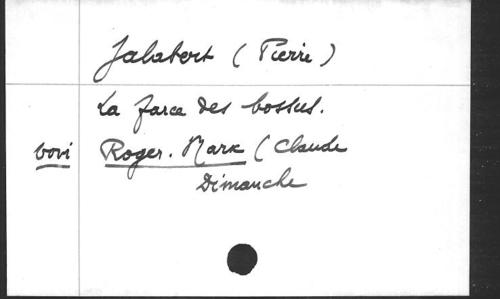 Jalabert (Pierre)
La farce des bossus.
bovi Roger. Marx (Claude
Dimanche